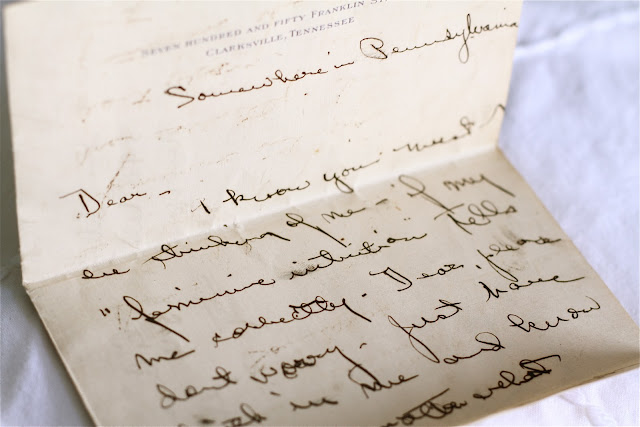 SEVEN HUNDRED AND FIFTY FRANKLIN ST
CLARKSVILLE, TENNESSEE
Somewhere in Pennsylvania
Dear - I know you must
be thinking of me - if my
"feminine intuition" tells
me correctly. Dear, please
dont worry. Just have
in me and know
what